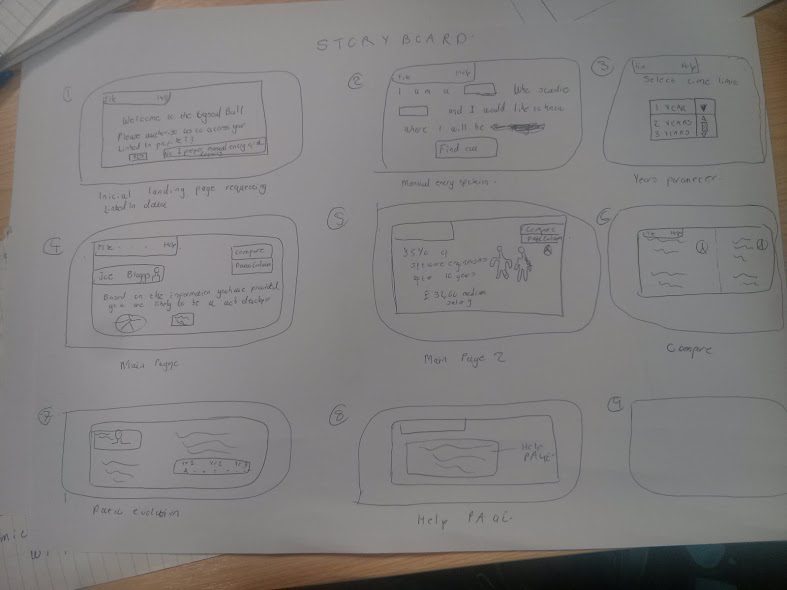 STORYBOARD.
1
File Help
Welcome to the Crystal Ball
Please authorise us to access your
Linked In profile
manual entry
Initial landing page requesting
Linked In details
2
File Help
I am a who studied
and I would like to know
where I will be
Find out
Manual entry system.
3
File Help
Select time limit
1 YEAR
2 YEARS
3 YEARS
Years parameter
4
File . . . . Help
Compare
Joe Bloggs
Based on the information you have provided
you are likely to be a
Main Page
5
Compare
35% of
software engineers
after 10 years
median
salary
Main Page 2
6
File Help
1
Compare
7
Yr 1 Yr 2 Yr 3
evolution
8
Help
PAGE
Help PAGE.
9